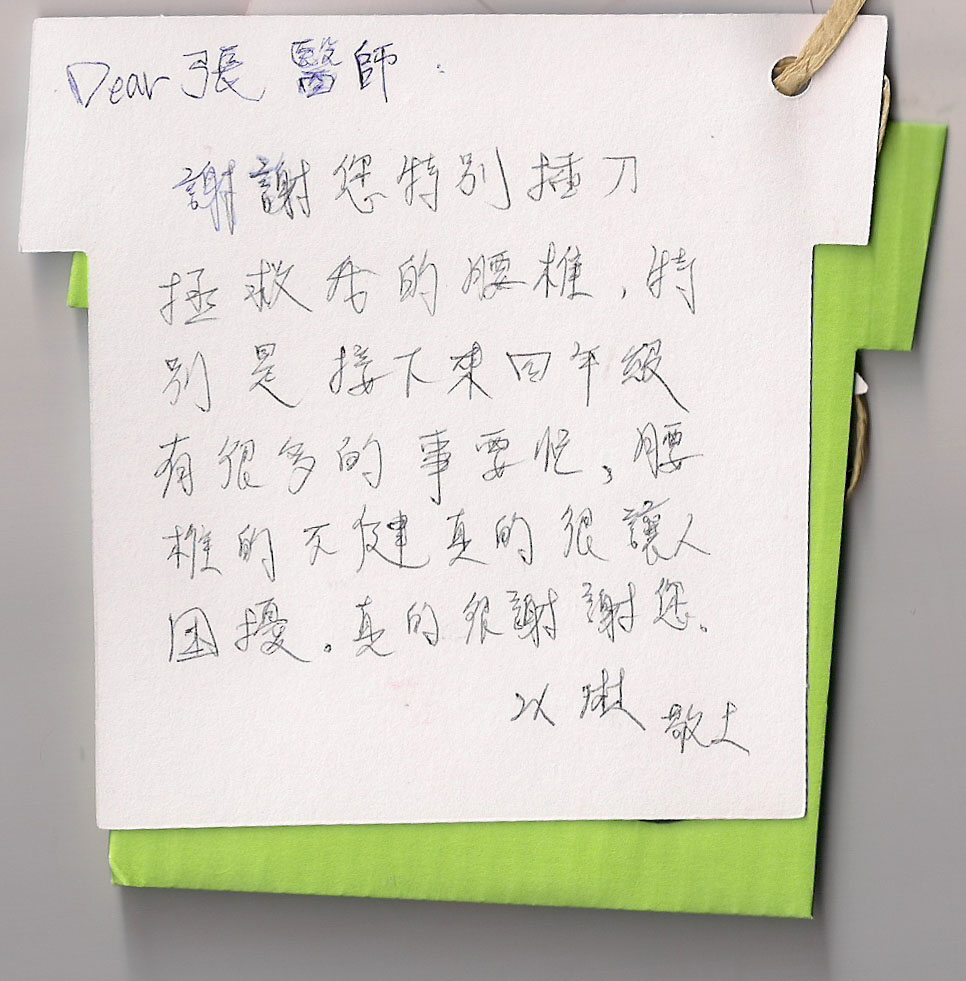 Dear 張醫師：
謝謝您特別插刀
拯救我的腰椎，特
別是接下來四年級
有很多的事要忙，腰
椎的不健真的很讓人
困擾。真的很謝謝您。
以琳 敬上